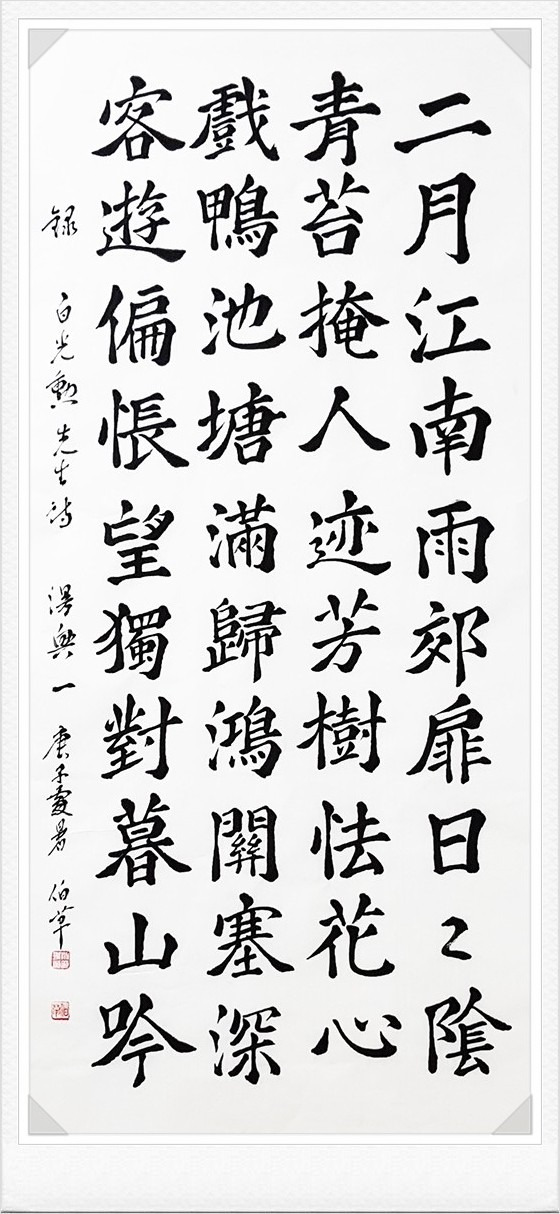 二月江南雨郊扉日〻陰
青苔掩人迹芳樹怯花心
戲鴨池塘滿歸鴻關塞深
客遊偏悵望獨對暮山吟
錄 白光勲先生詩 漫興一 庚子處暑 伯草